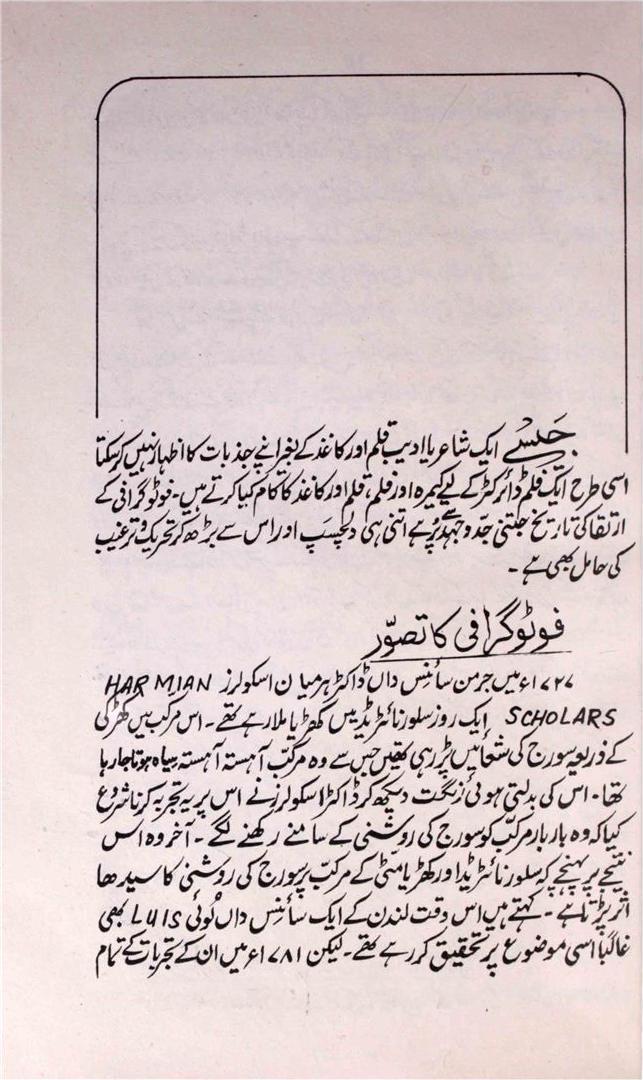 جیسے ایک شاعر یا ادیب قلم اور کاغذ کے بغیر اپنے جذبات کا اظہار نہیں کر سکتا
اسی طرح ایک فلم ڈائرکٹر کے لیے کیمرہ اور فلم، قلم اور کاغذ کا کام کیا کرتے ہیں۔ فوٹو گرافی کے
ارتقا کی تاریخ جتنی جدّ و جہد سے پُر ہے اتنی ہی دلچسپ اور اس سے بڑھ کر تحریک و ترغیب
کی حامل بھی ہے۔
فوٹو گرافی کا تصوّر
۱۷۲۷ء میں جرمن سائنس داں ڈاکٹر ہرمیان اسکولرز HARMIAN
SCHOLARS ایک روز سلور نائٹریڈ میں کھڑیا ملا رہے تھے۔ اس مرکب میں کھڑکی
کے ذریعہ سورج کی شعائیں پڑ رہی تھیں جس سے وہ مرکب آہستہ آہستہ سیاہ ہوتا جا رہا
تھا۔ اس کی بدلتی ہوئی رنگت دیکھ کر ڈاکٹر اسکولرز نے اس پر یہ تجربہ کرنا شروع
کیا کہ وہ بار بار مرکب کو سورج کی روشنی کے سامنے رکھنے لگے۔ آخر وہ اس
نتیجے پر پہنچے کہ سلور نائٹریڈ اور کھڑیا مٹی کے مرکب پر سورج کی روشنی کا سیدھا
اثر پڑتا ہے۔ کہتے ہیں اس وقت لندن کے ایک سائنس داں لُوئی LUIS بھی
غالباً اسی موضوع پر تحقیق کر رہے تھے۔ لیکن ۱۷۸۱ء میں ان کے تجربات کے تمام